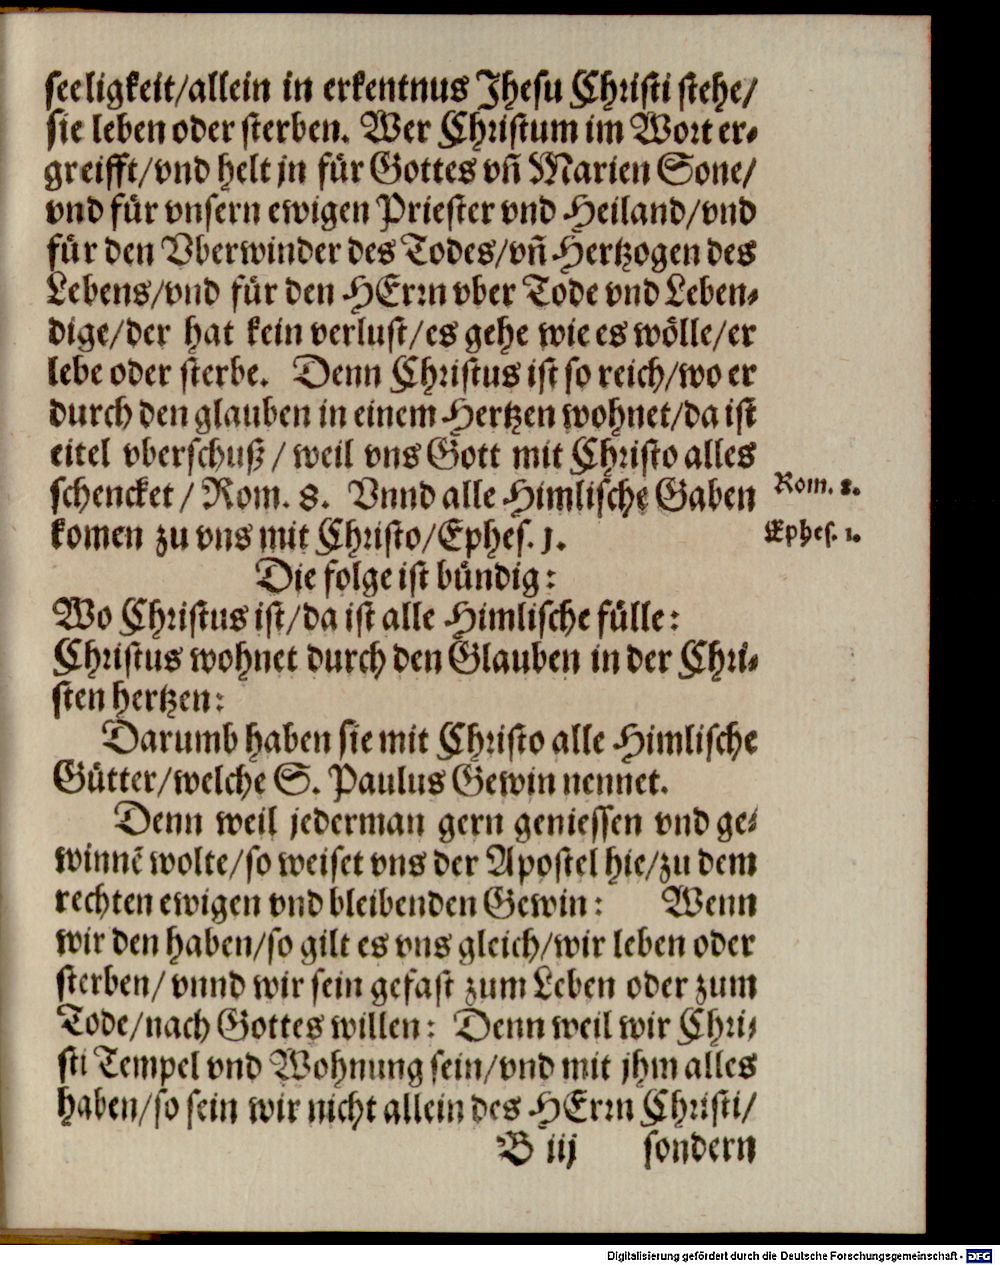 seeligkeit/allein in erkentnus Jhesu Christi stehe/
sie leben oder sterben. Wer Christum im Wort er⸗
greifft/vnd helt jn für Gottes vñ Marien Sone/
vnd für vnsern ewigen Priester vnd Heiland/vnd
für den Vberwinder des Todes/vñ Hertzogen des
Lebens/vnd für den HErrn vber Tode vnd Leben⸗
dige/der hat kein verlust/es gehe wie es wölle/er
lebe oder sterbe. Denn Christus ist so reich/wo er
durch den glauben in einem Hertzen wohnet/da ist
eitel vberschuß / weil vns Gott mit Christo alles
schencket / Rom. 8. Vnnd alle Himlische Gaben
Rom. 8.
komen zu vns mit Christo/Ephes. j.
Ephes. 1.
Die folge ist bündig:
Wo Christus ist/da ist alle Himlische fülle:
Christus wohnet durch den Glauben in der Chri⸗
sten hertzen:
Darumb haben sie mit Christo alle Himlische
Gütter/welche S. Paulus Gewin nennet.
Denn weil jederman gern geniessen vnd ge⸗
winnẽ wolte/so weiset vns der Apostel hie/zu dem
rechten ewigen vnd bleibenden Gewin: Wenn
wir den haben/so gilt es vns gleich/wir leben oder
sterben/ vnnd wir sein gefast zum Leben oder zum
Tode/nach Gottes willen: Denn weil wir Chri⸗
sti Tempel vnd Wohnung sein/vnd mit jhm alles
haben/so sein wir nicht allein des HErrn Christi/
B iij sondern
Digitalisierung gefördert durch die Deutsche Forschungsgemeinschaft - DFG